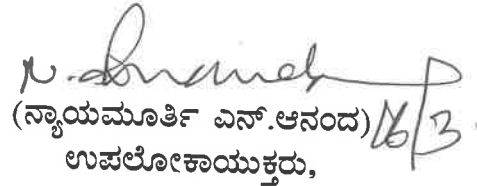 N. Ananda
(ನ್ಯಾಯಮೂರ್ತಿ ಎನ್.ಆನಂದ) 16/3
ಉಪಲೋಕಾಯುಕ್ತರು,